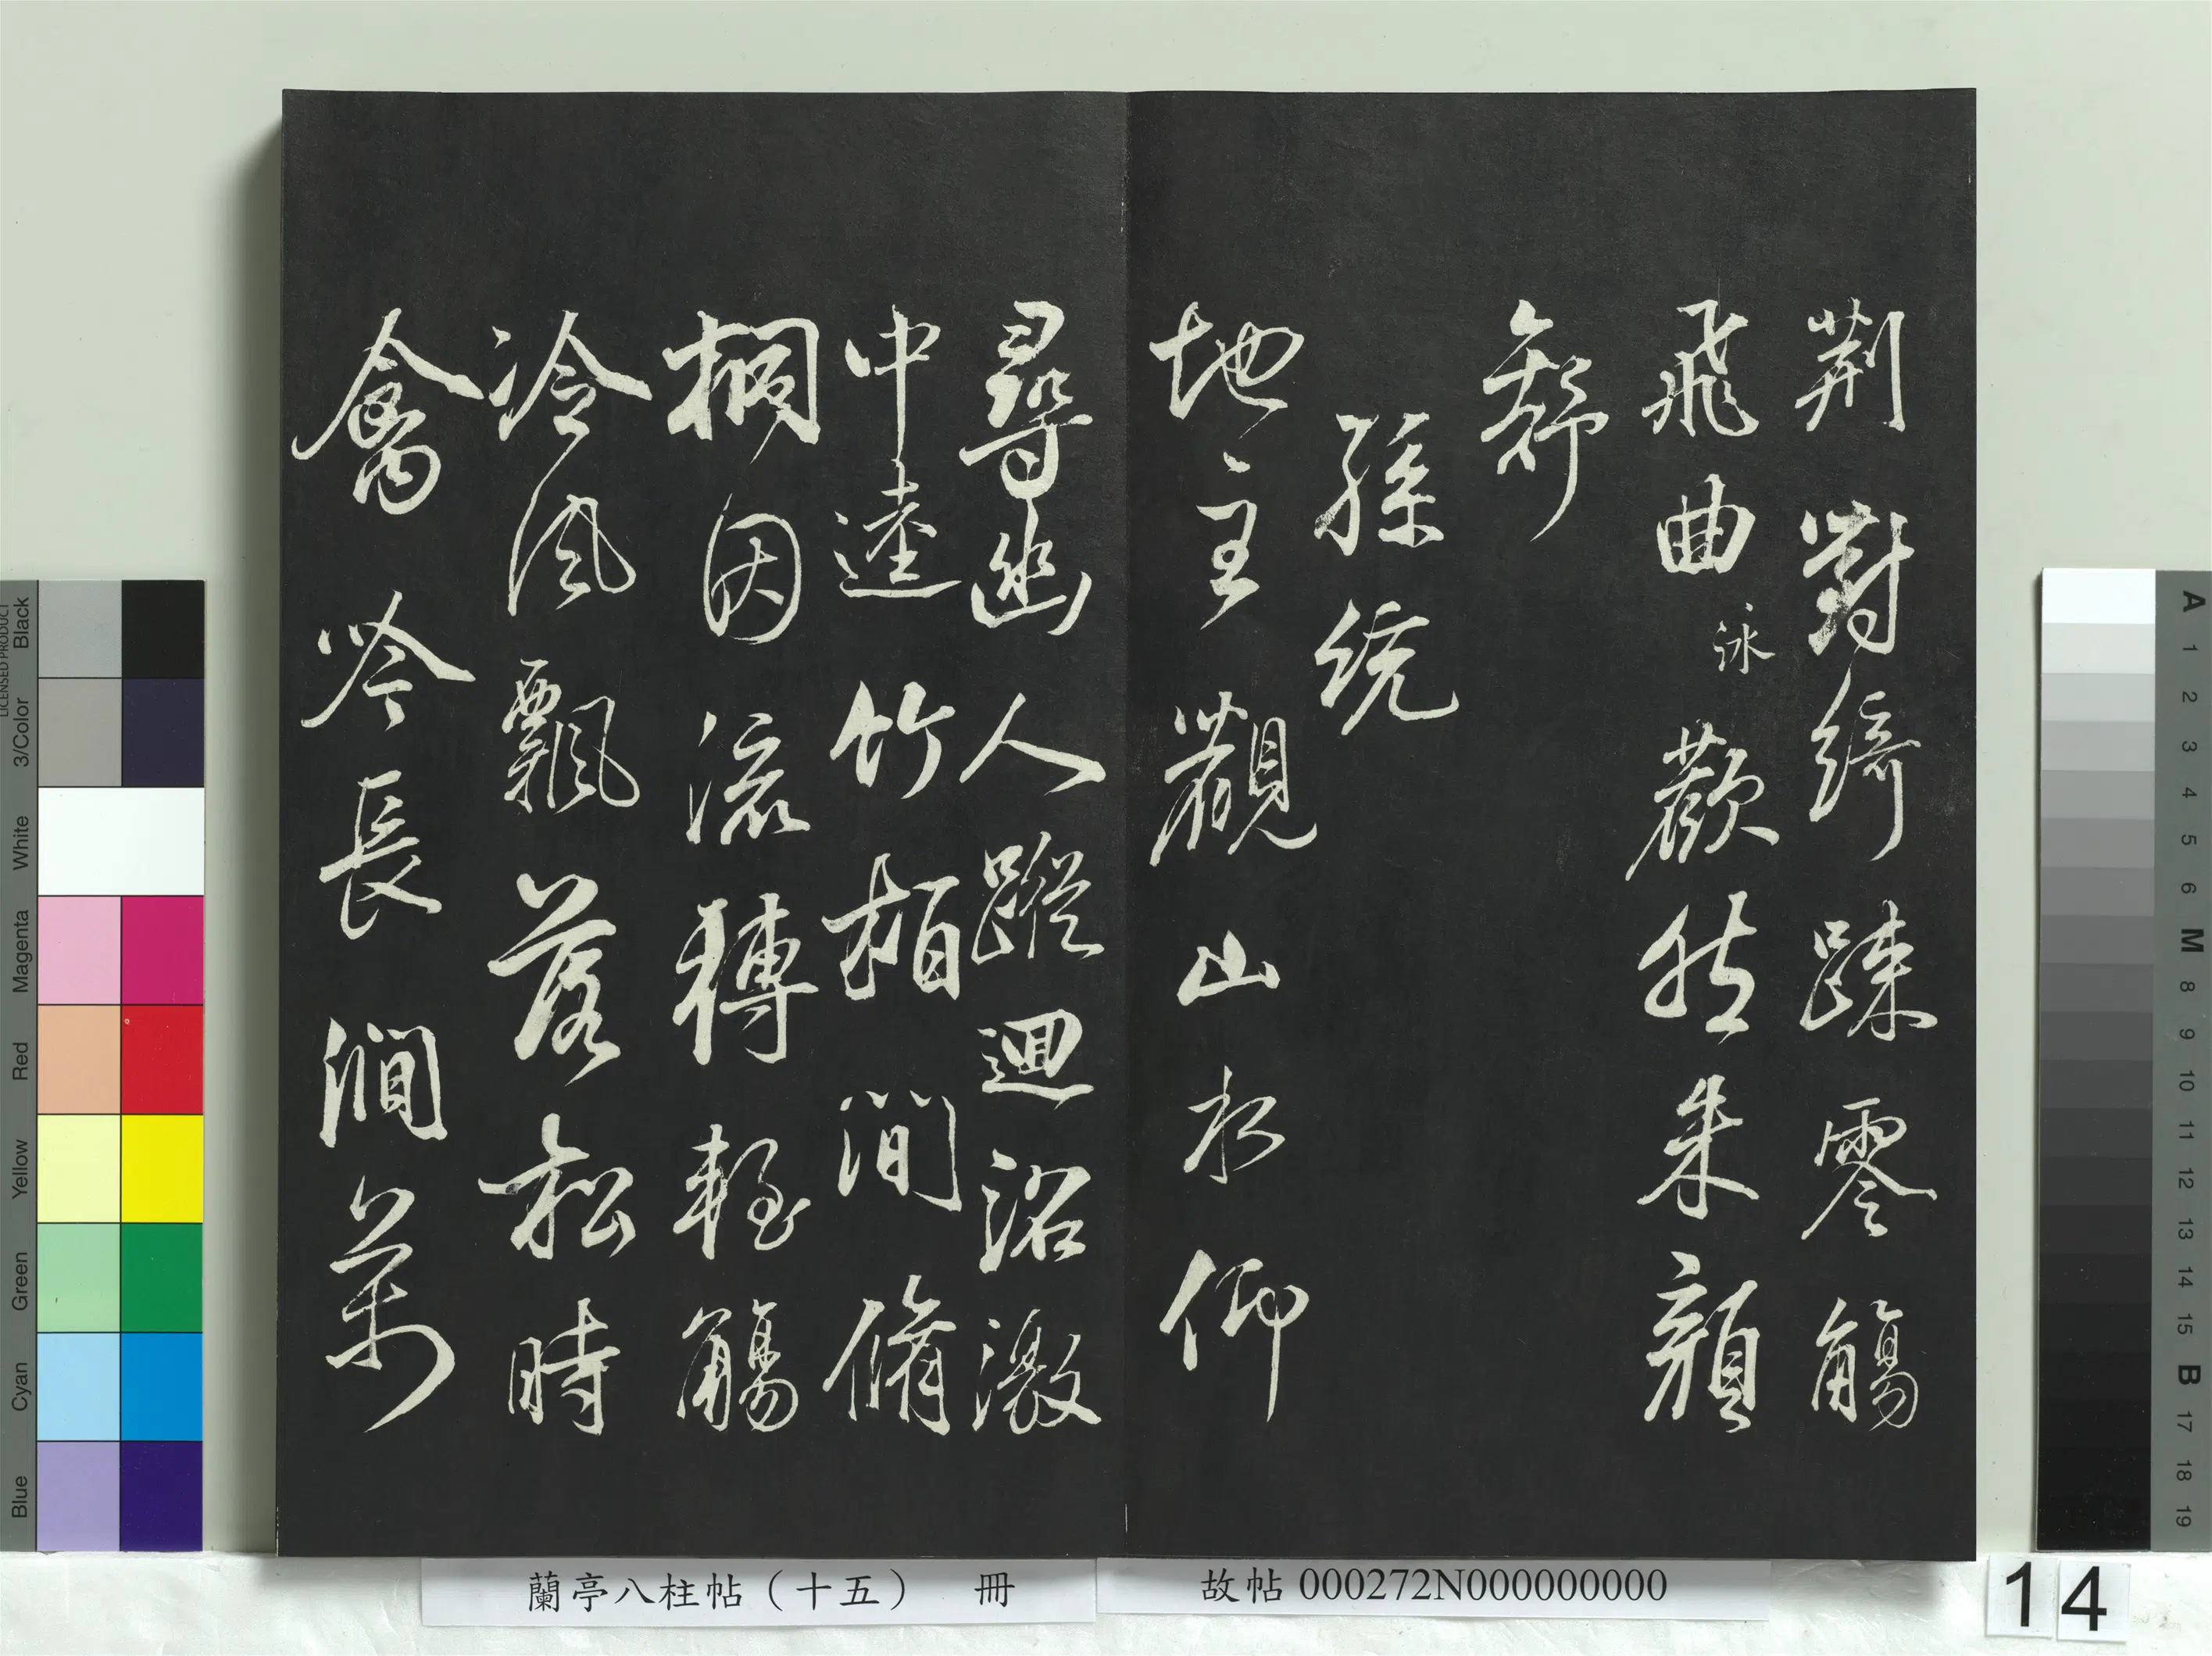 荆對綺踈零觴
飛曲泳歡然朱顔
舒
孫統
地主觀山水仰
尋幽人蹤迴沼激
中逵竹栢間脩
桐因流轉輕觴
冷風飄落松時
禽吟長澗萬
蘭亭八柱帖（十五） 冊
故帖 000272N000000000
14
LICENSED PRODUCT
Black
3/Color
White
Magenta
Red
Yellow
Green
Cyan
Blue
A
1
2
3
4
5
6
M
8
9
10
11
12
13
14
15
B
17
18
19